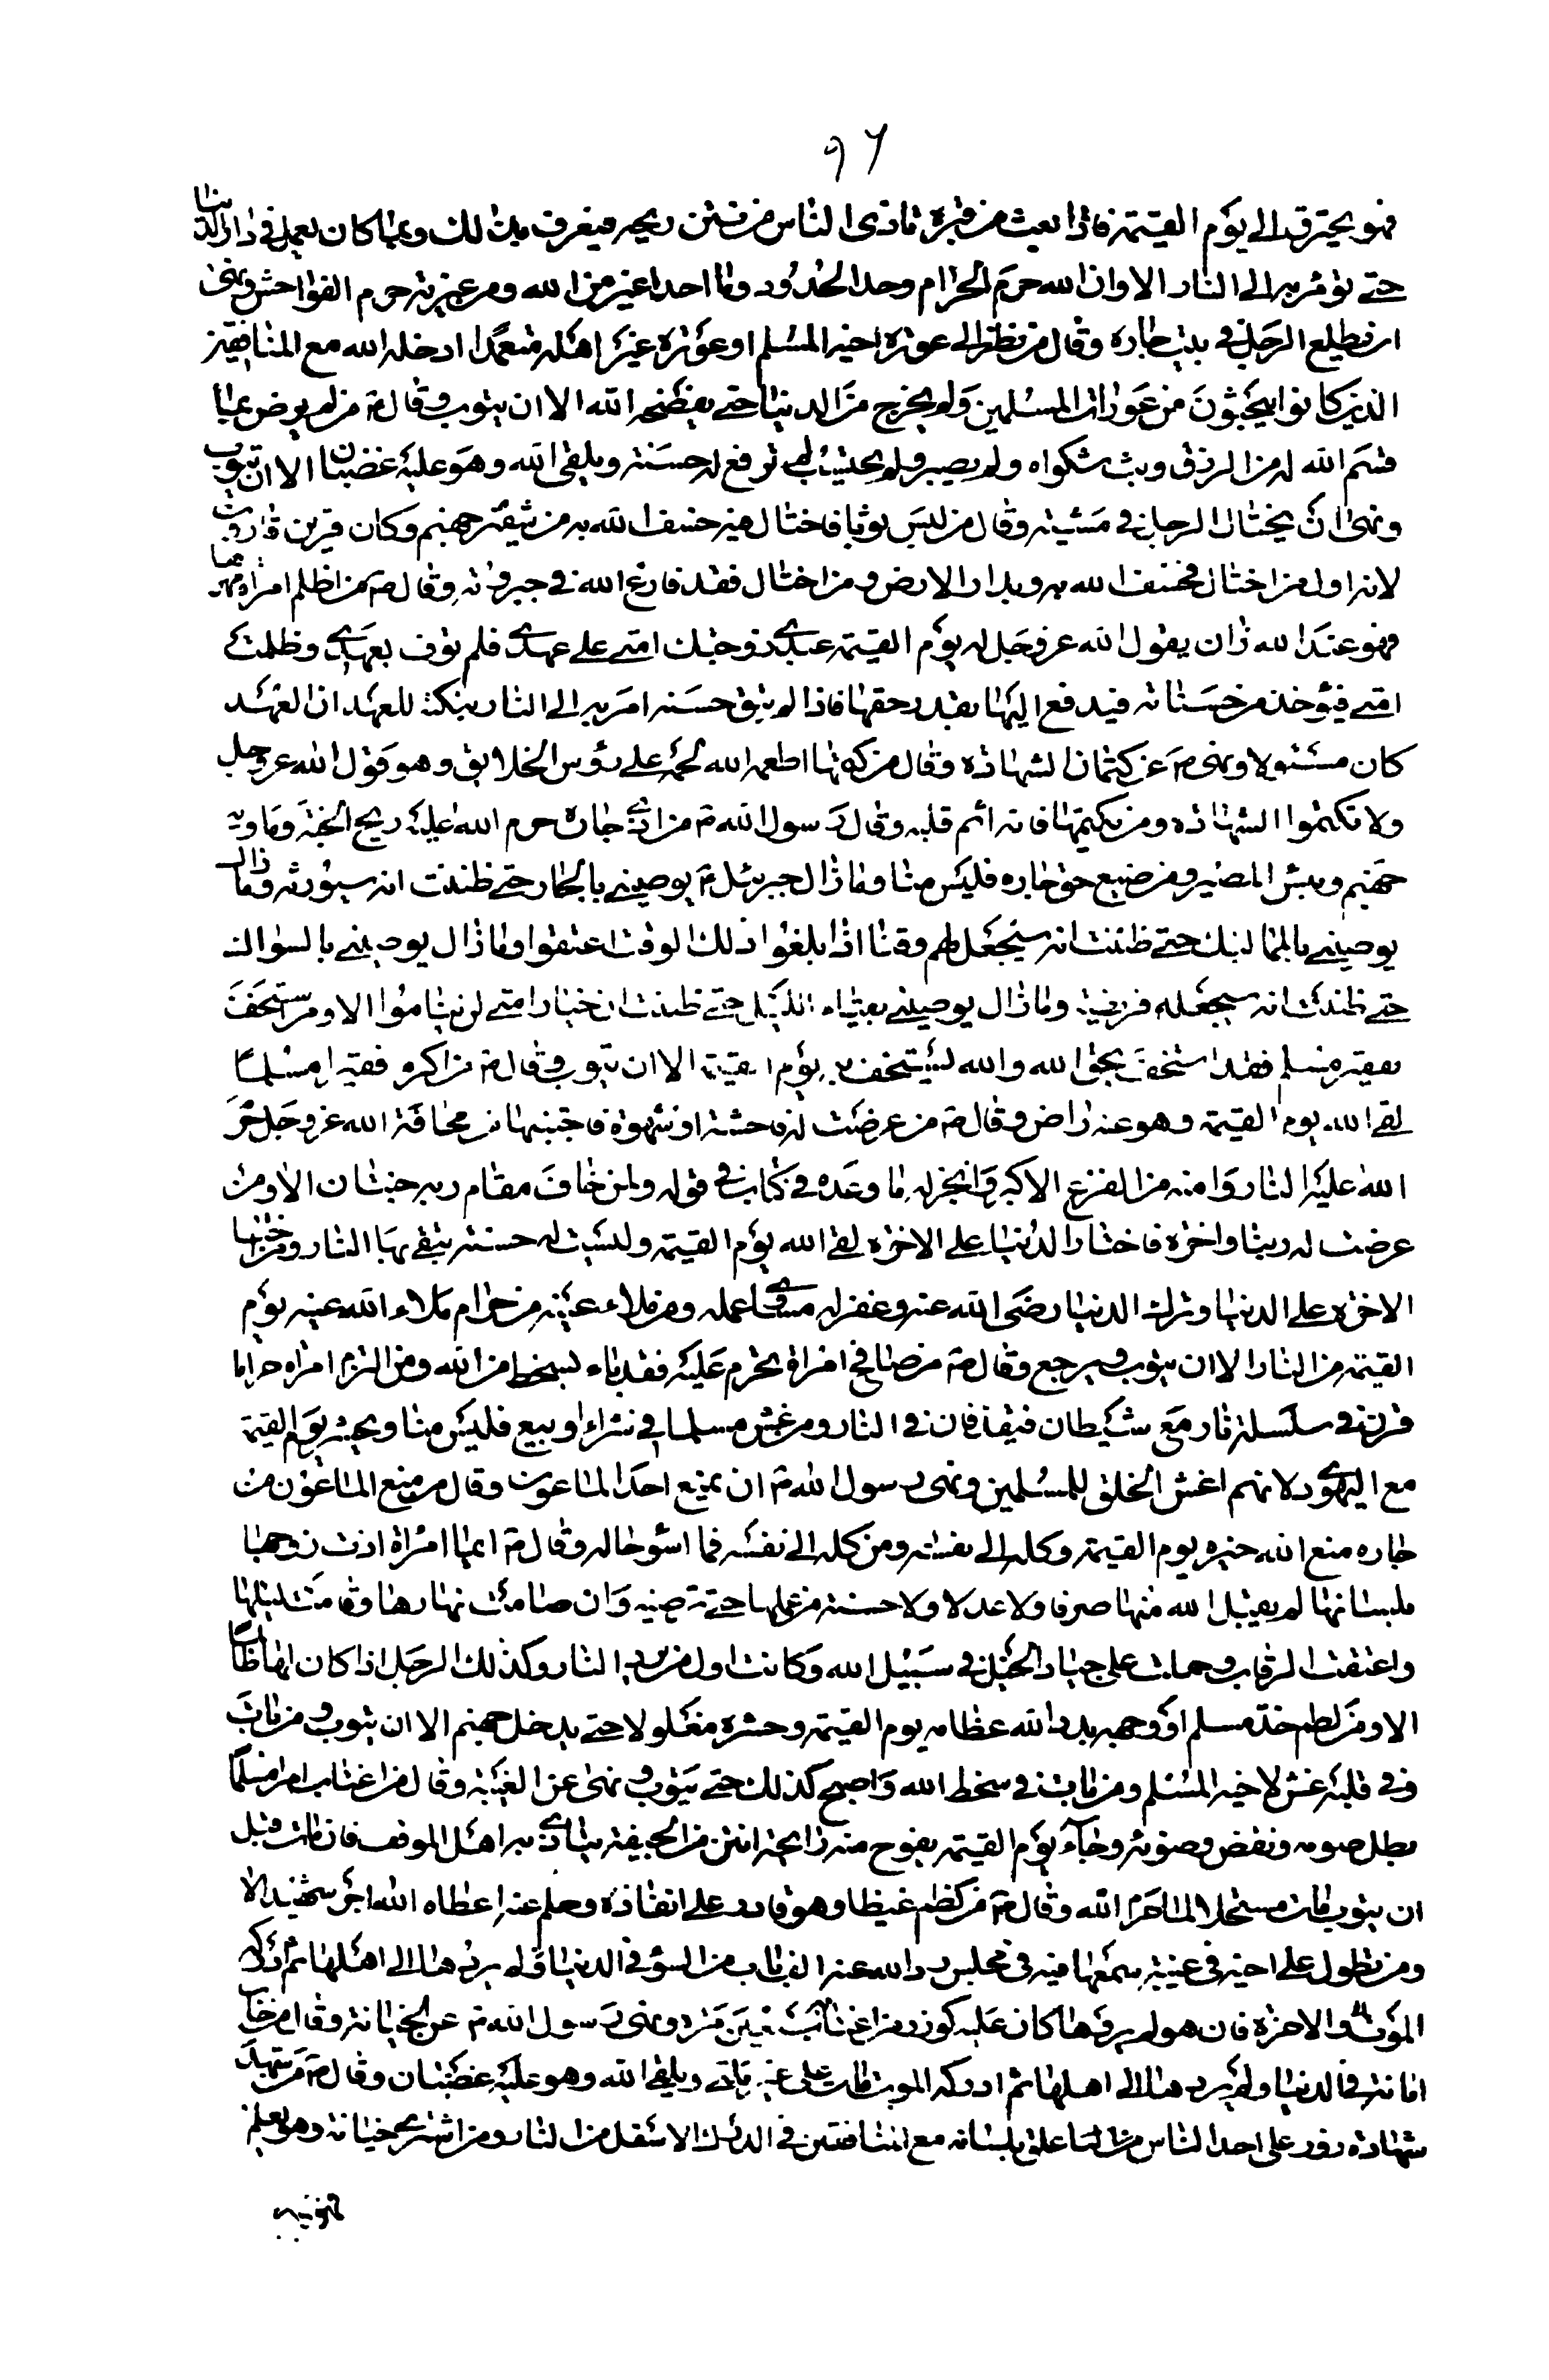 ٩٦
فهو يحترق الى يوم القيمة فاذا بعث من قبره تاذى الناس من نتن ريحه فيعرف بذلك وبما كان يعمل في دار الدنيا
حتى يؤمر به الى النار الا وان الله حرم الحرام وحد الحدود وما احد اغير من الله ومن غيرته حرم الفواحش ونهى
ان يطلع الرجل في بيت جاره وقال من نظر الى عورة اخيه المسلم او عورة غير اهله متعمدا ادخله الله مع المنافقين
الذين كانوا يبحثون من عورات المسلمين ولم يخرج من الدنيا حتى يفضحه الله الا ان يتوب وقال ص من لم يرض بما
قسم الله له من الرزق وبث شكواه ولم يصبر ولم يحتسب لم ترفع له حسنة ويلقى الله وهو عليه غضبان الا ان يتوب
ونهى ان يختال الرجل في مشيته وقال من لبس ثوبا فاختال فيه خسف الله به من شفير جهنم وكان قرين قارون
لانه اول من اختال فخسف الله به وبداره الارض ومن اختال فقد نازع الله في جبروته وقال ص من ظلم امراة مهرها
فهو عند الله زان يقول الله عز وجل له يوم القيمة عبدي زوجتك امتي على عهدي فلم توف بعهدي وظلمت
امتي فيؤخذ من حسناته فيدفع اليها بقدر حقها فاذا لم تبق حسنة امر به الى النار بنكثه للعهد ان العهد
كان مسئولا ونهى ص عن كتمان الشهادة وقال من كتمها اطعمه الله لحمه على رؤس الخلايق وهو قول الله عز وجل
ولا تكتموا الشهادة ومن يكتمها فانه اثم قلبه وقال رسول الله ص من اذى جاره حرم الله عليه ريح الجنة وماويه
جهنم وبئس المصير ومن ضيع حق جاره فليس منا وما زال جبرئيل ع يوصيني بالجار حتى ظننت انه سيورثه وما زال
يوصيني بالمماليك حتى ظننت انه سيجعل لهم وقتا اذا بلغوا ذلك الوقت اعتقوا وما زال يوصيني بالسواك
حتى ظننت انه سيجعله فريضة وما زال يوصيني بقيام الليل حتى ظننت ان خيار امتي لن يناموا الا ومن استخف
بفقير مسلم فقد استخف بحق الله والله يستخف به يوم القيمة الا ان يتوب وقال ص من اكرم فقيرا مسلما
لقى الله يوم القيمة وهو عنه راض وقال ص من عرضت له فاحشة او شهوة فاجتنبها من مخافة الله عز وجل حرم
الله عليه النار وامنه من الفزع الاكبر وانجز له ما وعده في كتابه في قوله ولمن خاف مقام ربه جنتان الا ومن
عرضت له دنيا واخرة فاختار الدنيا على الاخرة لقى الله يوم القيمة وليست له حسنة يتقى بها النار ومن اختار
الاخرة على الدنيا وترك الدنيا رضى الله عنه وغفر له مساوي عمله ومن ملاء عينيه من حرام ملاء الله عينيه يوم
القيمة من النار الا ان يتوب ويرجع وقال ص من صافح امراة تحرم عليه فقد باء بسخط من الله ومن التزم امراة حراما
قرن في سلسلة نار مع شيطان فيقذفان في النار ومن غش مسلما في شراء او بيع فليس منا ويحشر يوم القيمة
مع اليهود لانهم اغش الخلق للمسلمين ونهى رسول الله ص ان يمنع احد الماعون وقال من منع الماعون من
جاره منع الله خيره يوم القيمة وكله الى نفسه ومن كله الى نفسه فما اسوء حاله وقال ص ايما امراة اذت زوجها
بلسانها لم يقبل الله منها صرفا ولا عدلا ولا حسنة من عملها حتى ترضيه وان صامت نهارها وقامت ليلها
واعتقت الرقاب وحملت على جياد الخيل في سبيل الله وكانت اول من يرد النار وكذلك الرجل اذا كان لها ظالما
الا ومن لطم خد مسلم او وجهه بدد الله عظامه يوم القيمة وحشره مغلولا حتى يدخل جهنم الا ان يتوب ومن بات
وفي قلبه غش لاخيه المسلم ومن بات في سخط الله واصبح كذلك حتى يتوب ونهى عن الغيبة وقال من اغتاب امرا مسلما
بطل صومه ونقض وضوئه وجاء يوم القيمة يفوح منه رائحة انتن من الجيفة يتاذى به اهل الموقف فان مات قبل
ان يتوب مات مستحلا لما حرم الله وقال ص من كظم غيظا وهو قادر على انفاذه وحلم عنه اعطاه الله اجر شهيد الا
ومن تطول على اخيه في غيبة سمعها فيه في مجلس رد الله عنه الف باب من السوء في الدنيا ولم يردها الى اهلها ثم ادركه
الموت والاخرة فان هو لم يردها كان عليه كوزر من اغتابه سبعين مرة ونهى رسول الله ص عن الخيانة وقال من خان
امانة في الدنيا ولم يردها الى اهلها ثم ادركه الموت مات على غير ملتي ويلقى الله وهو عليه غضبان وقال ص من شهد
شهادة زور على احد الناس علق بلسانه مع المنافقين في الدرك الاسفل من النار ومن اشترى خيانة وهو يعلم